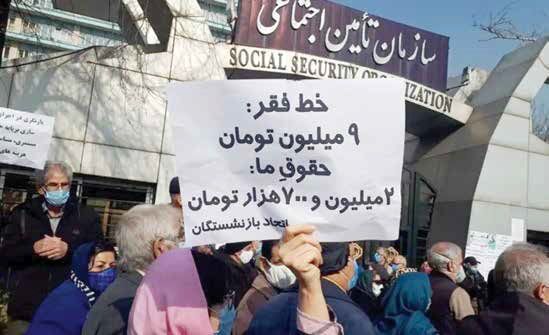 سازمان تأمین اجتماعی
SOCIAL SECURITY ORGANIZATION
خط فقر:
۹ میلیون تومان
حقوقِ ما:
۲ میلیون و ۷۰۰ هزار تومان
اتحاد بازنشستگان
سازی برپایه
مستمری،
هزینه های